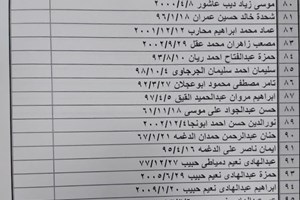 موسى زياد ديب عاشور ٢٠٠٠/٤/٨ ٨٠
شحدة خالد حسين عمران ٩٦/١/١٨ ٨١
عماد محمد ابراهيم محارب ٢٠٠١/١٢/١٢ ٨٢
مصعب زاهران محمد عقل ٢٠٠٢/٩/٢٩ ٨٣
حمزة عبدالفتاح احمد ريان ٩٣/٨/١٠ ٨٤
سليمان احمد سليمان الجرجاوي ٩٨/١٠/٤ ٨٥
تامر مصطفى محمود ابوعجلان ٩٢/٣/٢٧ ٨٦
ابراهيم مروان عبدالحميد القيق ٩٧/٤/٥ ٨٧
حسن عبدالجواد علي موسى ٦١/١١/١٨ ٨٨
نورالدين حسن احمد ٢٠٠٢/١٢/٤ ٨٩
حنان عبدالرحمن حمدان الدغمه ٦٧/١/٢١ ٩٠
ايمان ناصر علي الدغمه ٩٥/٤/١٦ ٩١
عبدالهادي نعيم دمياطي حبيب ٧٧/١٢/٢٧ ٩٢
حمزة عبدالهادي نعيم حبيب ٢٠٠٥/٦/٢٩ ٩٣
ابراهيم عبدالهادي نعيم حبيب ٢٠٠٩/١/٢٠ ٩٤